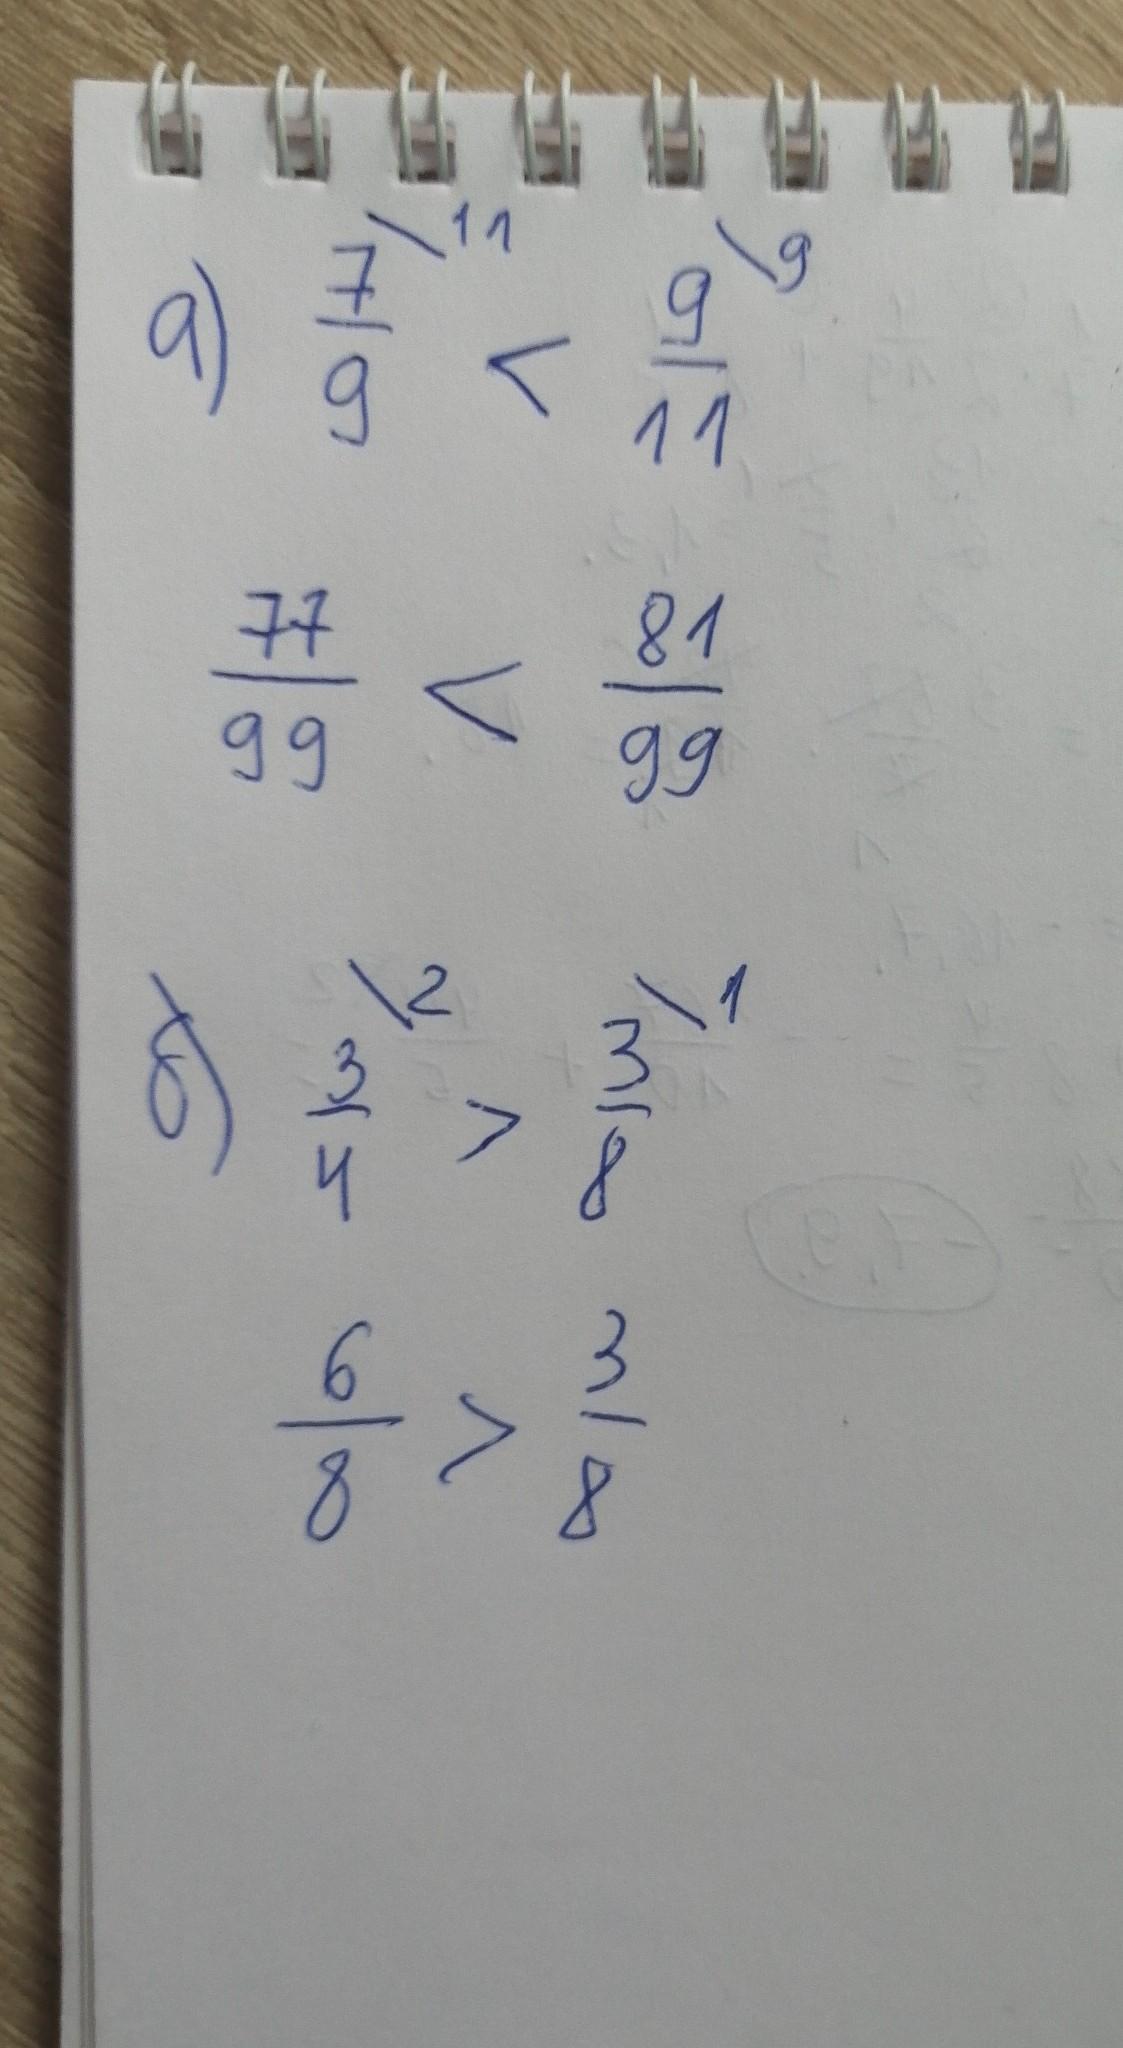 а) 7/9 \11 < 9/11 \9
77/99 < 81/99
б) 3/4 \2 > 3/8 \1
6/8 > 3/8